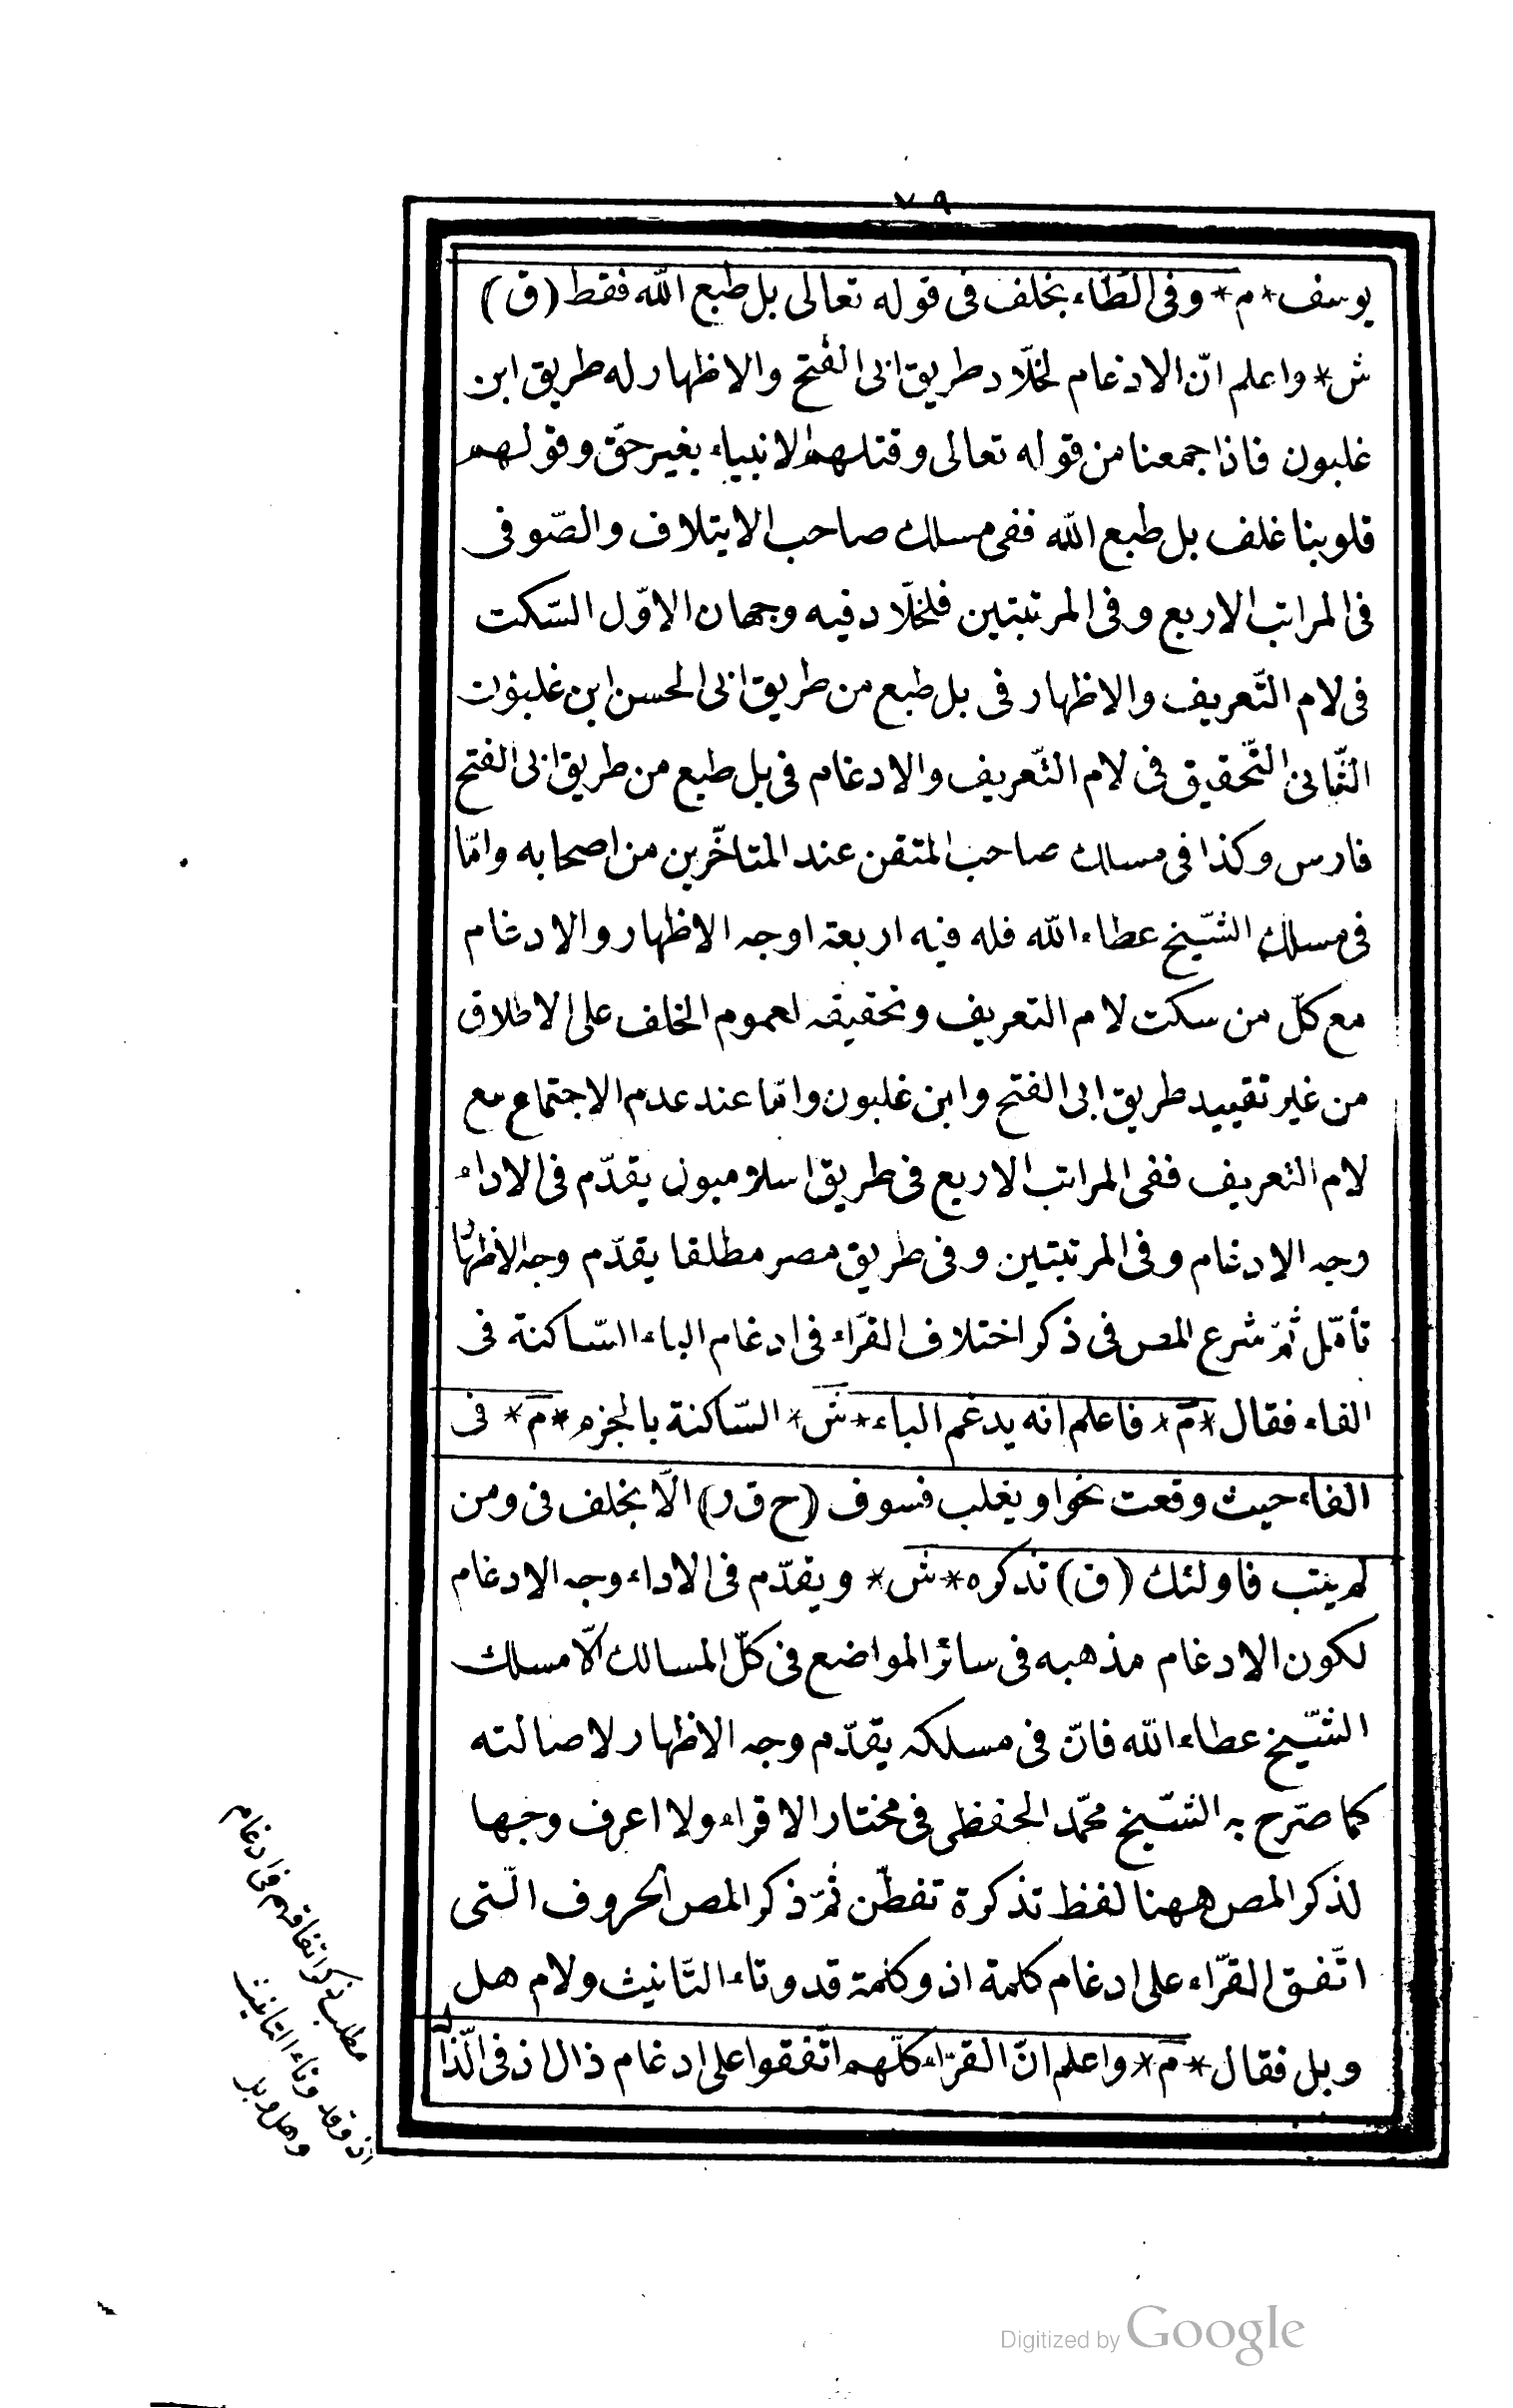 ٧٩
يوسف *م* وفى الطّاء بخلف فى قوله تعالى بل طبع اللّه فقط (ق)
ش* واعلم انّ الادغام لخلّاد طريق ابى الفتح والاظهار له طريق ابن
غلبون فاذا جمعنا من قوله تعالى وقتلهم الانبياء بغير حقّ وقولهم
قلوبنا غلف بل طبع اللّه ففى مسلك صاحب الايتلاف والصّوفى
فى المراتب الاربع وفى المرتبتين فلخلّاد فيه وجهان الاوّل السّكت
فى لام التّعريف والاظهار فى بل طبع من طريق ابى الحسن ابن غلبون
الثّانى التّحقيق فى لام التّعريف والادغام فى بل طبع من طريق ابى الفتح
فارس وكذا فى مسلك صاحب المتقن عند المتاخّرين من اصحابه وامّا
فى مسلك الشّيخ عطاء اللّه فله فيه اربعة اوجه الاظهار والادغام
مع كلّ من سكت لام التعريف وتحقيقه لعموم الخلف على الاطلاق
من غير تقييد طريق ابى الفتح وابن غلبون وامّا عند عدم الاجتماع مع
لام التعريف ففى المراتب الاربع فى طريق اسلامبول يقدّم فى الاداء
وجه الادغام وفى المرتبتين وفى طريق مصر مطلقا يقدّم وجه الاظهار
تأمّل ثمّ شرع المص فى ذكر اختلاف القرّاء فى ادغام الباء السّاكنة فى
الفاء فقال *م* فاعلم انه يدغم الباء *ش* السّاكنة بالجزم *م* فى
الفاء حيث وقعت نحو او يغلب فسوف (ح ق ر) الّا بخلف فى ومن
لم يتب فاولئك (ق) تذكره *ش* ويقدّم فى الاداء وجه الادغام
لكون الادغام مذهبه فى سائر المواضع فى كلّ المسالك الّا مسلك
الشّيخ عطاء اللّه فانّ فى مسلكه يقدّم وجه الاظهار لاصالته
كما صرّح به الشّيخ محمّد الحفظى فى مختار الاقراء ولا اعرف وجها
لذكر المص ههنا لفظ تذكرة تفطّن ثمّ ذكر المص الحروف الّتى
اتّفق القرّاء على ادغام كلمة اذ وكلمة قد وتاء التّانيث ولام هل
وبل فقال *م* واعلم انّ القرّاء كلّهم اتّفقوا على ادغام ذال اذ فى الّذال
مطلب ذكر اتفاقهم فى ادغام
اذ وقد وتاء التانيث
وهل وبل
Digitized by Google